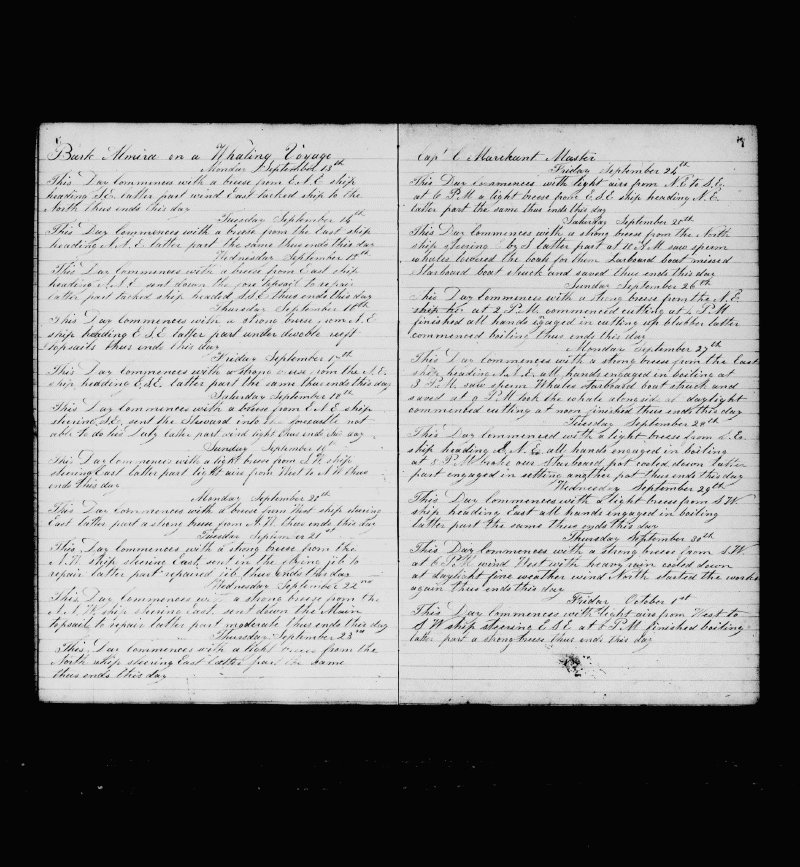 Bark Almira on a Whaling Voyage
Monday September 13th
This Day Commences with a breese from E.N.E ship
heading S.E. latter part wind East tacked ship to the
North thus ends this day
Tuesday September 14th
This Day Commences with a breese from the East ship
heading N.N.E. latter part the same thus ends this day
Wednesday September 15th
This Day Commences with a breese from East ship
heading N.N.E sent down the fore topsail to repair
latter part tacked ship headed S.S.E. thus ends this day
Thursday September 16th
This Day commences with a strong breese from N.E
ship heading E.S.E. latter part under devoble reeft
topsails thus ends this day
Friday September 17th
This Day Commences with a strong breese from the N.E.
ship heading E.S.E. latter part the same thus ends this day
Saturday September 18th
This Day commences with a breese from E.N.E. ship
steering S.E. sent the Steward into the forecastle not
able to do his Duty latter part wind light thus ends this day
Sunday September
This Day Commences with a light breese from N.W. ship
steering East latter part light airs from West to N.W. thus
ends this day
Monday September 20th
This Day Commences with a breese from West ship steering
East latter part a strong breese from N.W. thus ends this day
Tuesday September 21st
This Day Commences with a strong breese from the
N.W. ship steering East, sent in the flying jib to
repair latter part repaired jib thus ends this day
Wednesday September 22nd
This Day Commences with a strong breese from the
N.N.W. ship steering East, sent down the Main
topsail to repair latter part moderate thus ends this day
Thursday September 23rd
This Day Commences with a light breese from the
North ship steering East Latter part the same
thus ends this day
Capt C Marchant Master
7
Friday September 24th
This Day Commences with light airs from N.E to S.E.
at 6 P.M a light breese from E.S.E ship heading N.E.
latter part the same thus ends this day
Saturday September 25th
This Day Commences with a strong breese from the North
ship steering by S latter part at 10 A.M saw sperm
whales lowered the boats for them Larboard boat missed
Starboard boat struck and saved thus ends this day
Sunday September 26th
This Day Commences with a strong breese from the N.E.
ship at 2 P.M. commenced cutting at 4 P.M
finished all hands engaged in cutting up blubber latter
commenced boiling thus ends this day
Monday September 27th
This Day Commences with a strong breese from the East
ship heading N.N.E. all hands engaged in boiling at
3 P.M. saw sperm Whales starboard boat struck and
saved at 9 P.M took the whale alongside at daylight
commented cutting at noon finished thus ends this day
Tuesday September 28th
This Day Commenced with a light breese from S.E.
ship heading E.N.E. all hands engaged in boiling
at 8 P.M broke our Starboard pot cooled down latter
part engaged in setting another pot thus ends this day
Wednesday September 29th
This Day Commences with a light breese from S.W.
ship heading East all hands engaged in boiling
latter part the same thus ends this day
Thursday September 30th
This Day Commences with a strong breese from S.W.
at 6 P.M wind West with heavy rain cooled down
at daylight fine weather wind North started the works
again thus ends this day
Friday October 1st
This Day Commences with light airs from West to
S.W. ship steering E.S.E at 8 P.M finished boiling
latter part a strong breese thus ends this day